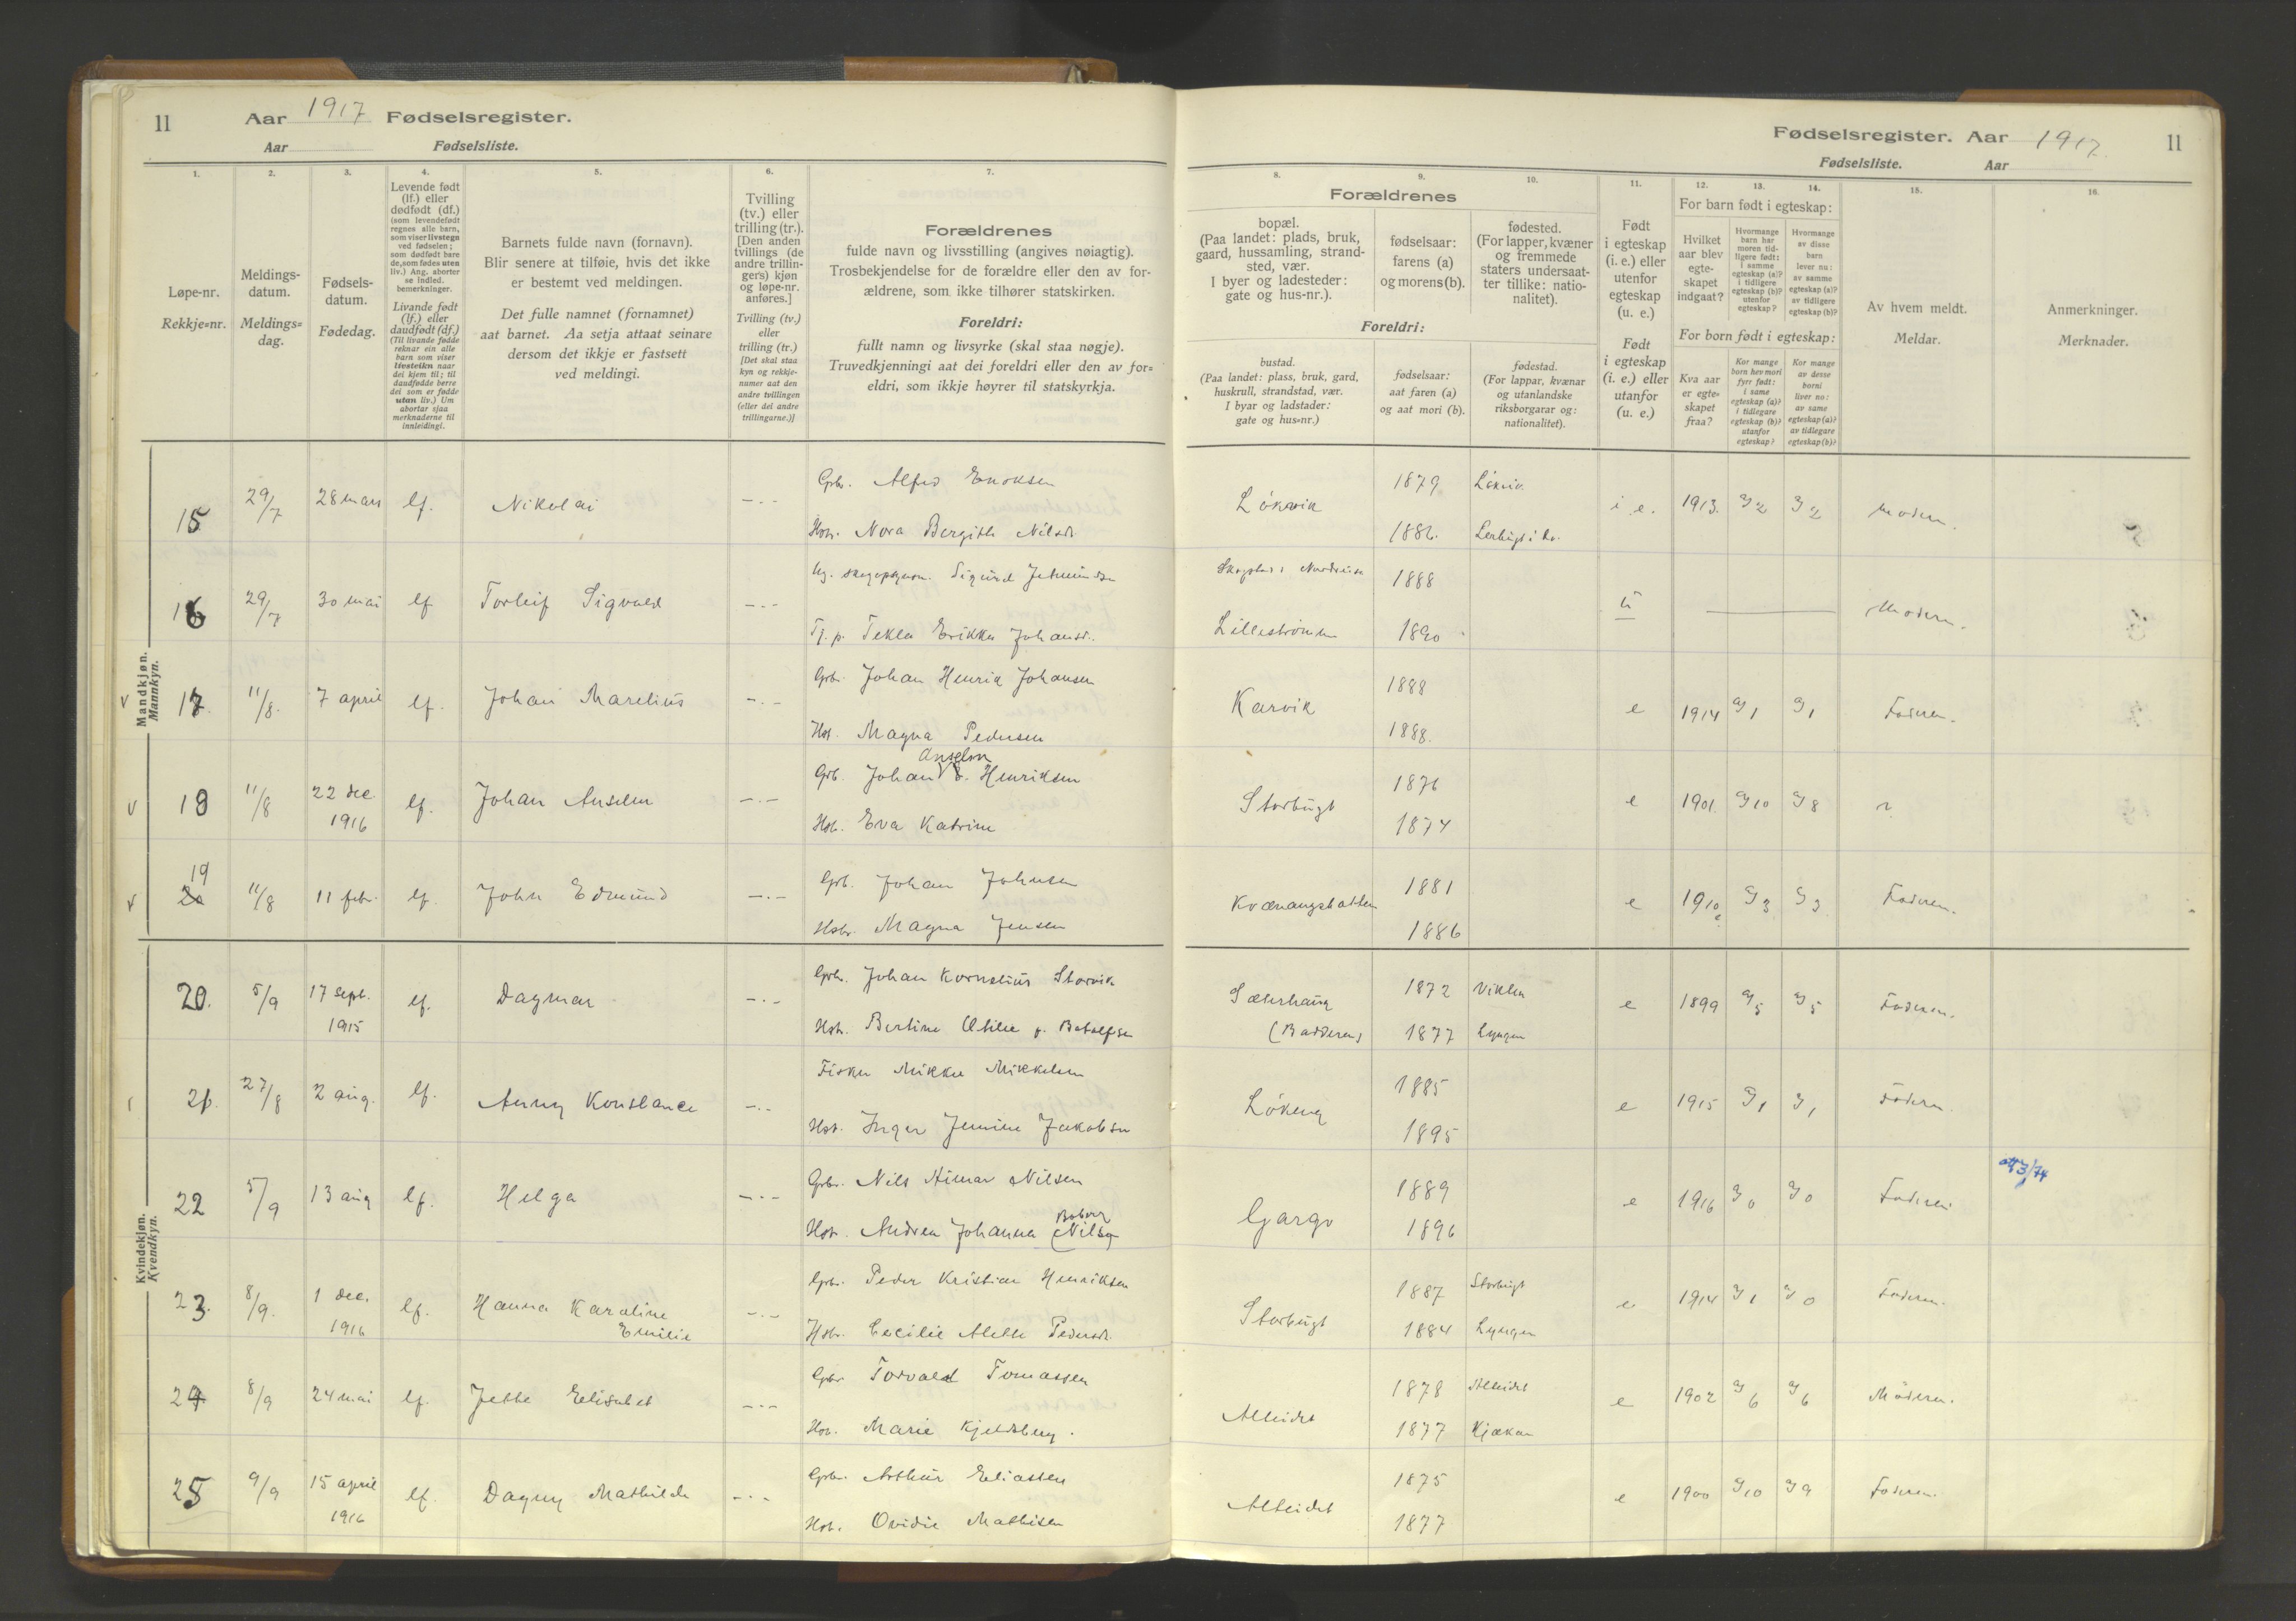 11 Aar 1917 Fødselsregister.
Aar Fødselsliste.
1. 2. 3. 4. 5. 6. 7.
Løpe-nr.
Rekkje=nr.
Meldings-
datum.
Meldings=
dag.
Fødsels-
datum.
Fødedag.
Levende født
(lf.) eller
dødfødt (df.)
(som levendefødt
regnes alle barn,
som viser livstegn
ved fødselen;
som dødfødt bare
de, som fødes uten
liv.) Ang. aborter
se indled.
bemerkninger.
Livande født
(lf.) eller
daudfødt (df.)
(Til livande fødde
reknar ein alle
barn som viser
livsteikn naar
dei kjem til; til
daudfødde berre
dei som er fødde
utan liv.) Um
abortar sjaa
merknaderne til
innleidingi.
Barnets fulde navn (fornavn).
Blir senere at tilføie, hvis det ikke
er bestemt ved meldingen.
Det fulle namnet (fornamnet)
aat barnet. Aa setja attaat seinare
dersom det ikkje er fastsett
ved meldingi.
Tvilling
(tv.) eller
trilling (tr.).
[Den anden
tvillings (de
andre trillin-
gers) kjøn
og løpe-nr.
anføres.]
Tvilling (tv.)
eller
trilling (tr.)
[Det skal staa
kyn og rekkje-
numer aat den
andre tvillingen
(eller dei andre
trillingarne.)]
Forældrenes
fulde navn og livsstilling (angives nøiagtig).
Trosbekjendelse for de forældre eller den av for-
ældrene, som ikke tilhører statskirken.
Foreldri:
fullt namn og livsyrke (skal staa nøgje).
Truvedkjenningi aat dei foreldri eller den av for=
eldri, som ikkje høyrer til statskyrkja.
Fødselsregister. Aar 1917. 11
Fødselsliste. Aar
8. 9. 10. 11. 12. 13. 14. 15. 16.
Forældrenes
bopæl.
(Paa landet: plads, bruk,
gaard, hussamling, strand-
sted, vær.
I byer og ladesteder:
gate og hus-nr.).
fødselsaar:
farens (a)
og morens (b).
fødested.
(For lapper, kvæner
og fremmede
staters undersaat-
ter tillike: natio-
nalitet).
Foreldri:
bustad.
(Paa landet: plass, bruk, gard,
huskrull, strandstad, vær.
I byar og ladstader:
gate og hus=nr.)
fødselsaar:
aat faren (a)
og aat mori (b).
fødestad.
(For lappar, kvænar
og utanlandske
riksborgarar og:
nationalitet).
Født
i egteskap
(i. e.) eller
utenfor
egteskap
(u. e.)
Født
i egteskap
(i. e.) eller
utanfor
(u. e.)
For barn født i egteskap:
Hvilket
aar blev
egte-
skapet
indgaat?
Hvormange
barn har
moren tid-
ligere født:
i samme
egteskap (a)?
i tidligere
egteskap (b)?
utenfor
egteskap?
Hvormange
av disse
barn
lever nu:
av samme
egteskap (a)?
av tidligere
egteskap (b)?
For born født i egteskap:
Kva aar
er egte-
skapet
fraa?
Kor mange
born hev mori
fyrr født:
i same
egteskap (a)?
i tidlegare
egteskap (b)?
utanfor
egteskap?
Kor mange
av desse
borni
liver no:
av same
egteskap (a)?
av tidlegare
egteskap (b)?
Av hvem meldt.
Meldar.
Anmerkninger.
Merknader.
Mandkjøn.
Mannkyn.
15 29/7 28 mars lf. Nikolai —.— Gbr. Alfred Enoksen 1879 Løkvik
Hstr. Nora Bergithe Nilsdr. Løkvik 1886. i. e. 1913. a) 2 a) 2 Moderen.
16 29/7 30 mai lf Torleif Sigvald —.— Sigurd 1888
Tj. p. Tekla Erikka Johansd. Lilleströmm 1890 u Moderen.
17 11/8. 7 april lf. Johan Marelius —.— Gbr. Johan Henrik Johansen Karvik 1888 e 1914 a) 1 a) 1 Faderen.
Hst. Magna Pedersen 1888.
Anselm
18 11/8 22 dec. 1916 lf. Johan Anselm —.— Grb. Johan Henriksen Storbugt 1876 e 1901. a) 10 a) 8
Hstr. Eva Katrine 1874
19 11/8 11 febr. lf. John Edmund —.— Grb. Johan Johnsen Kvænangsbotten 1881 e 1910 a) 3 a) 3 Faderen.
Hstr. Magna Jensen 1886
Kvindekjøn.
Kvendkyn.
20. 5/9 17 sept. 1915 lf. Dagmar —.— Gbr. Johan Kornelius Storvik 1872
Hstr. Bertine Otilie f. Botolfsen (Badderen) 1877 Lyngen e 1899 a) 5 a) 5 Faderen.
21. 27/8 2 aug. lf. Anny Konstance —.— Fisker Mikkel Mikkelsen Lökeng 1885 e 1915 a) 1 a) 1 Faderen
Hst. Inger Jenine Jakobsen 1895
22 5/9 13 aug lf. Helga —.— Gbr. Nils Himar Nilsen Gargo 1889 e 1916 a) 0 a) 0 Faderen
Hstr. Andrea Johanna 1896
23. 8/9. 1 dec. 1916 lf. Hanna Karoline Emilie —.— Gbr. Peder Kristian Henriksen Storbugt 1887 Storbugt e 1914 a) 1 a) 0 Faderen.
Hstr. Cecilie Alette Pedersdr. 1884 Lyngen
24 8/9 24 mai lf. Jette Elisabet —.— Gbr Torvald Tomassen Alteidet 1878 Alteidet e 1902 a) 6 a) 6 Moderen.
Hstr. Marie Kjeldsberg. 1877 Kjækan
25 9/9 15 april 1916 lf. Dagny Mathilde —.— Gbr. Arthur Eliassen Alteidet 1875 e 1900 a) 10 a) 9 Faderen.
Hstr. Ovidie Mathisen 1877